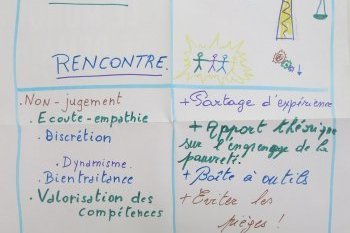 RENCONTRE.
Non-jugement
. Ecoute-empathie
. Discrétion
. Dynamisme.
. Bientraitance
. Valorisation des
compétences
+ Partage d'expérience
+ Apport théorique
sur l'engrenage de la
pauvreté.
+ Boîte à outils
+ Eviter les
pièges !